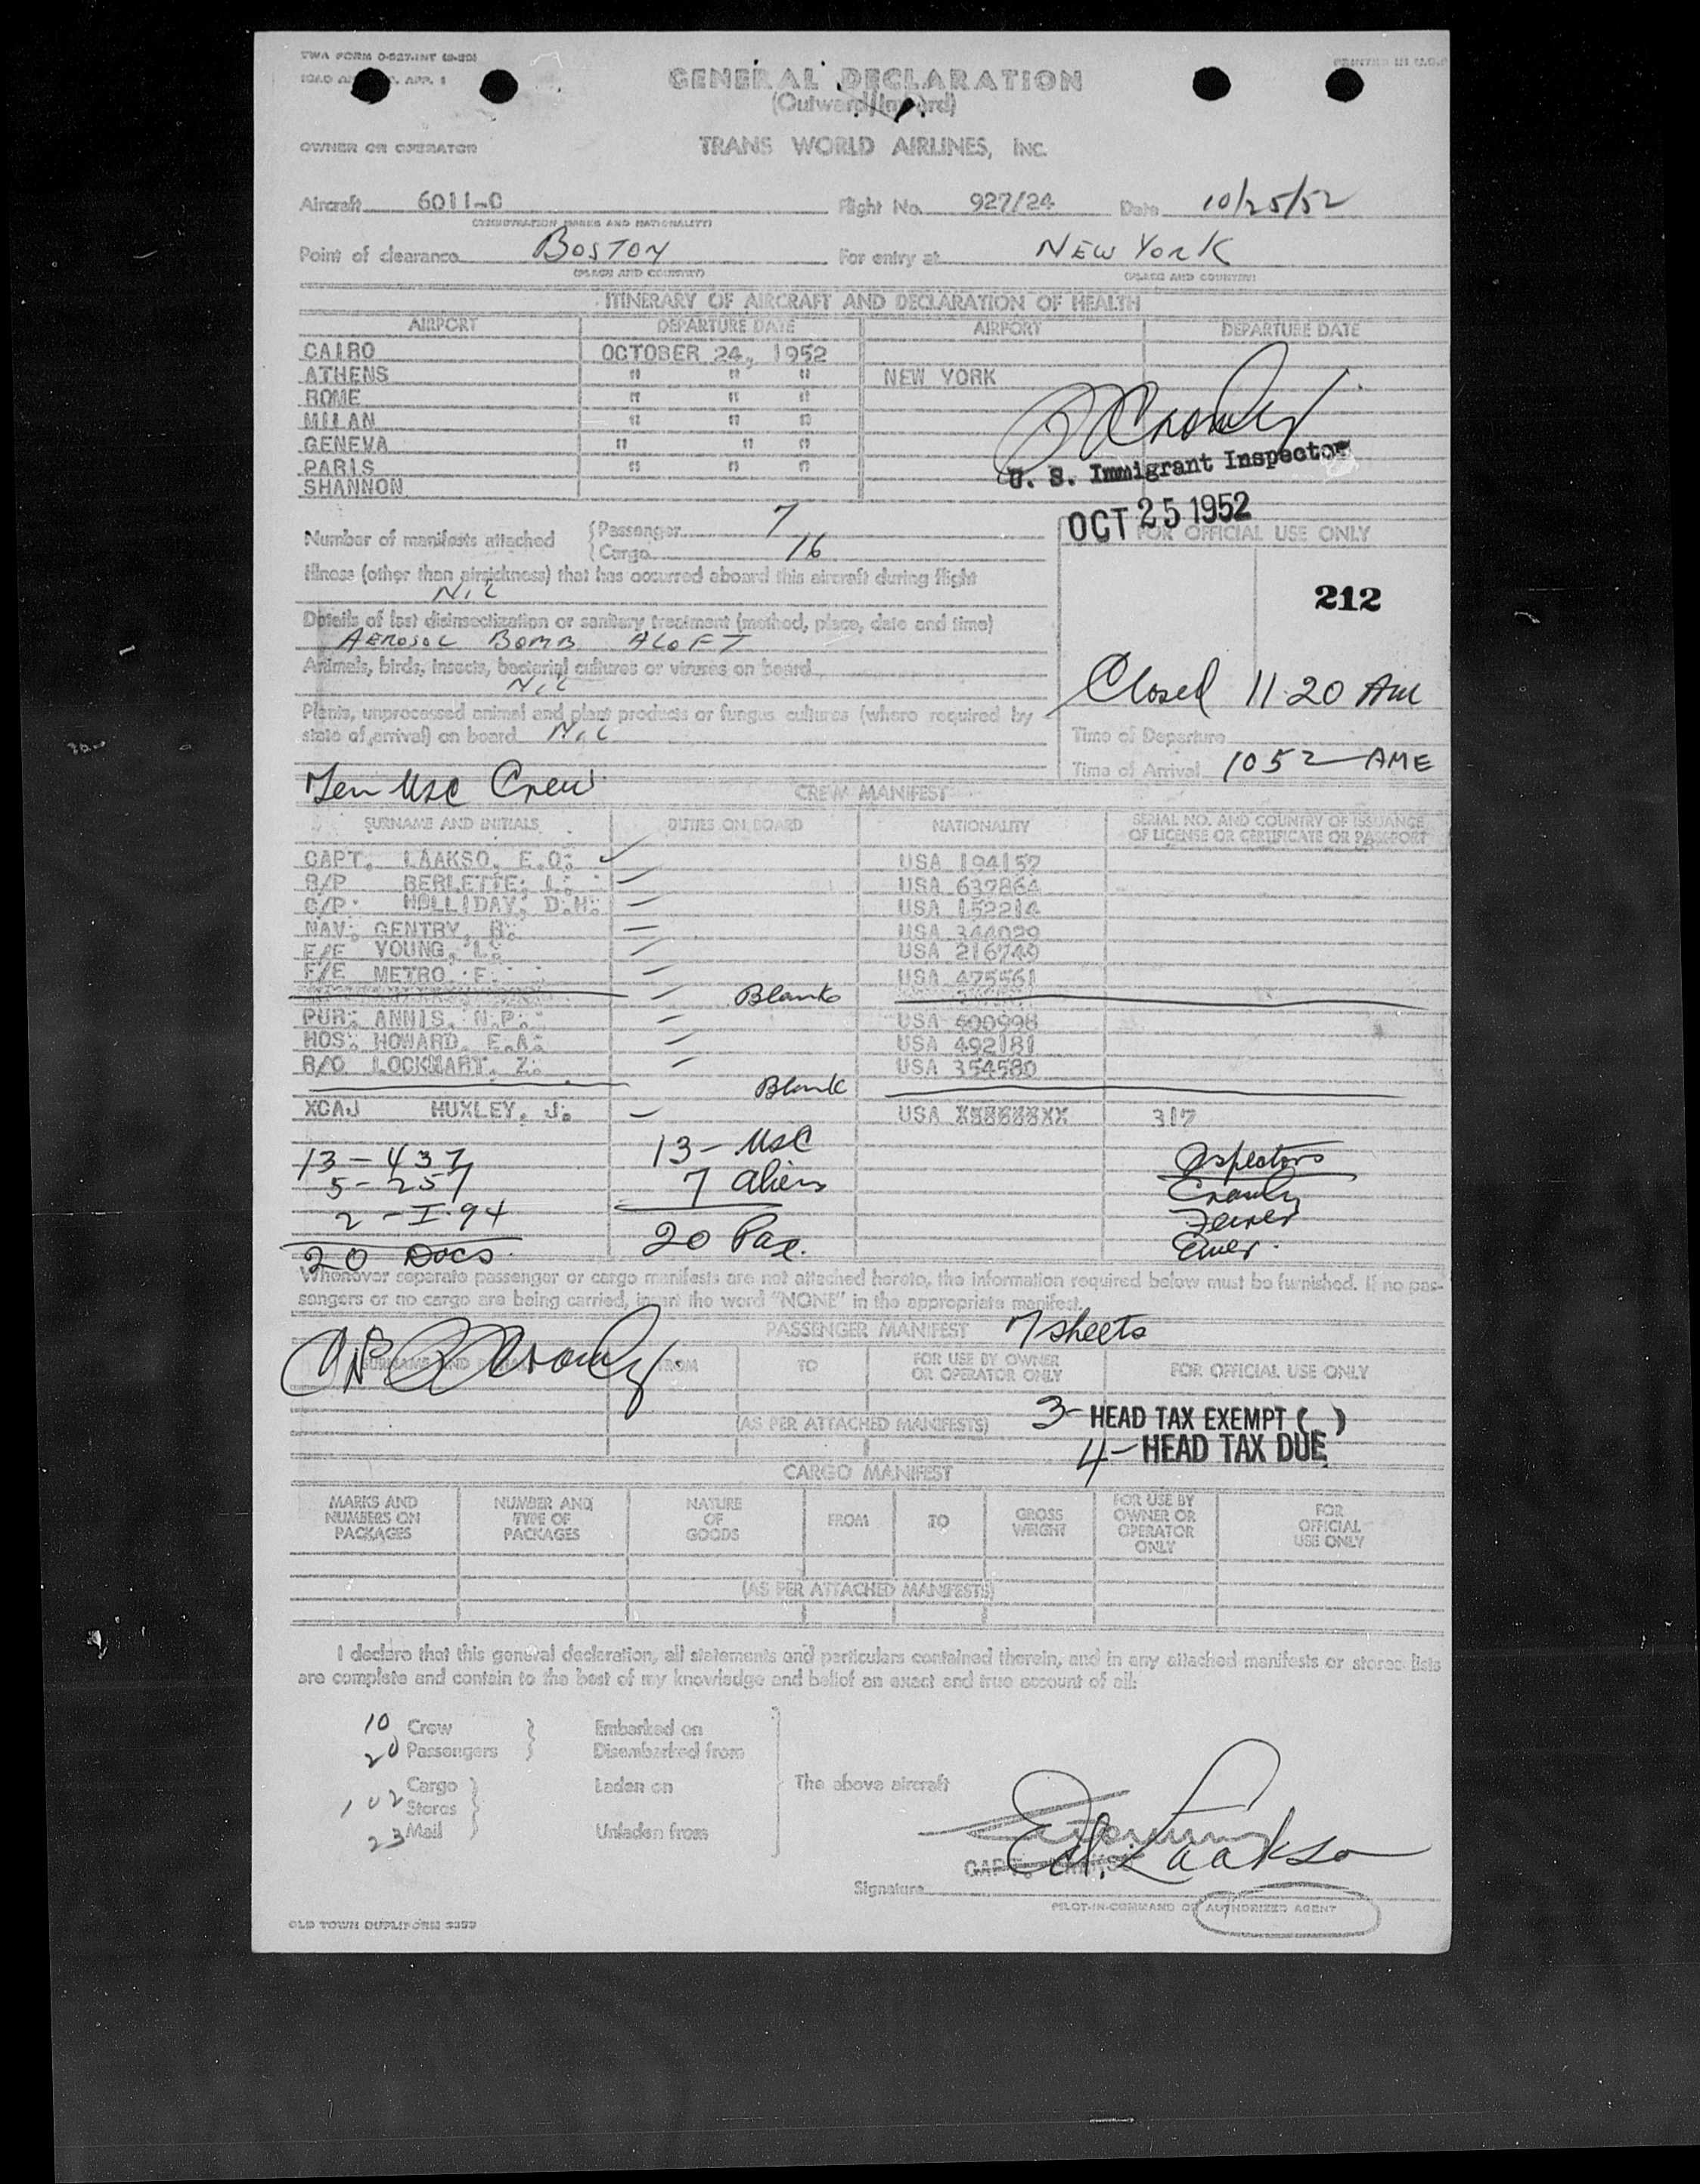 TWA FORM O-527-INT
GENERAL DECLARATION
(Outward/Inward)
OWNER OR OPERATOR TRANS WORLD AIRLINES, INC.
Aircraft 6011-C Flight No. 927/24 Date 10/25/52
(REGISTRATION MARKS AND NATIONALITY)
Point of clearance BOSTON For entry at NEW YORK
(PLACE AND COUNTRY) (PLACE AND COUNTRY)
ITINERARY OF AIRCRAFT AND DECLARATION OF HEALTH
AIRPORT DEPARTURE DATE AIRPORT DEPARTURE DATE
CAIRO OCTOBER 24, 1952
ATHENS " " " NEW YORK
ROME " " "
MILAN " " "
GENEVA " " "
PARIS " " "
SHANNON
U. S. Immigrant Inspector
OCT 25 1952
Number of manifests attached {Passenger 7
{Cargo 16
FOR OFFICIAL USE ONLY
Illness (other than airsickness) that has occurred aboard this aircraft during flight
NIL
212
Details of last disinsectization or sanitary treatment (method, place, date and time)
AEROSOL BOMB ALOFT
Animals, birds, insects, bacterial cultures or viruses on board
NIL
Closed 11 20 AM
Plants, unprocessed animal and plant products or fungus cultures (where required by
state of arrival) on board NIL
Time of Departure
Time of Arrival 1052 AME
Ten USC Crew
CREW MANIFEST
SURNAME AND INITIALS DUTIES ON BOARD NATIONALITY SERIAL NO. AND COUNTRY OF ISSUANCE
OF LICENSE OR CERTIFICATE OR PASSPORT
CAPT. LAAKSO, E.O. USA 194157
BERLETTE, L. USA 637864
HOLLIDAY, D.H. USA 152214
NAV. GENTRY, B. USA 344029
F/E YOUNG, L. USA 216749
F/E METRO F. USA 475561
Blank
PUR. ANNIS, N.P. USA 400998
HOS. HOWARD, E.A. USA 492181
R/O LOCKHART, Z. USA 354580
Blank
XCAJ HUXLEY, J. USA 317
13 - 437 13 - USC
5 - 257 7 Aliens
2 - I-94
20 Docs. 20 Pax.
Whenever separate passenger or cargo manifests are not attached hereto, the information required below must be furnished. If no pas-
sengers or no cargo are being carried, insert the word "NONE" in the appropriate manifest.
PASSENGER MANIFEST 7 sheets
SURNAME AND INITIALS FROM TO FOR USE BY OWNER
OR OPERATOR ONLY FOR OFFICIAL USE ONLY
(AS PER ATTACHED MANIFESTS) 3- HEAD TAX EXEMPT ( )
4- HEAD TAX DUE
CARGO MANIFEST
MARKS AND
NUMBERS ON
PACKAGES
NUMBER AND
TYPE OF
PACKAGES
NATURE
OF
GOODS
FROM
TO
GROSS
WEIGHT
FOR USE BY
OWNER OR
OPERATOR
ONLY
FOR
OFFICIAL
USE ONLY
(AS PER ATTACHED MANIFESTS)
I declare that this general declaration, all statements and particulars contained therein, and in any attached manifests or stores lists
are complete and contain to the best of my knowledge and belief an exact and true account of all:
10 Crew Embarked on
20 Passengers Disembarked from
Cargo Laden on The above aircraft
102 Stores
23 Mail Unladen from
E.O. Laakso
Signature
PILOT-IN-COMMAND OR AUTHORIZED AGENT
OLD TOWN DUPLIFORM